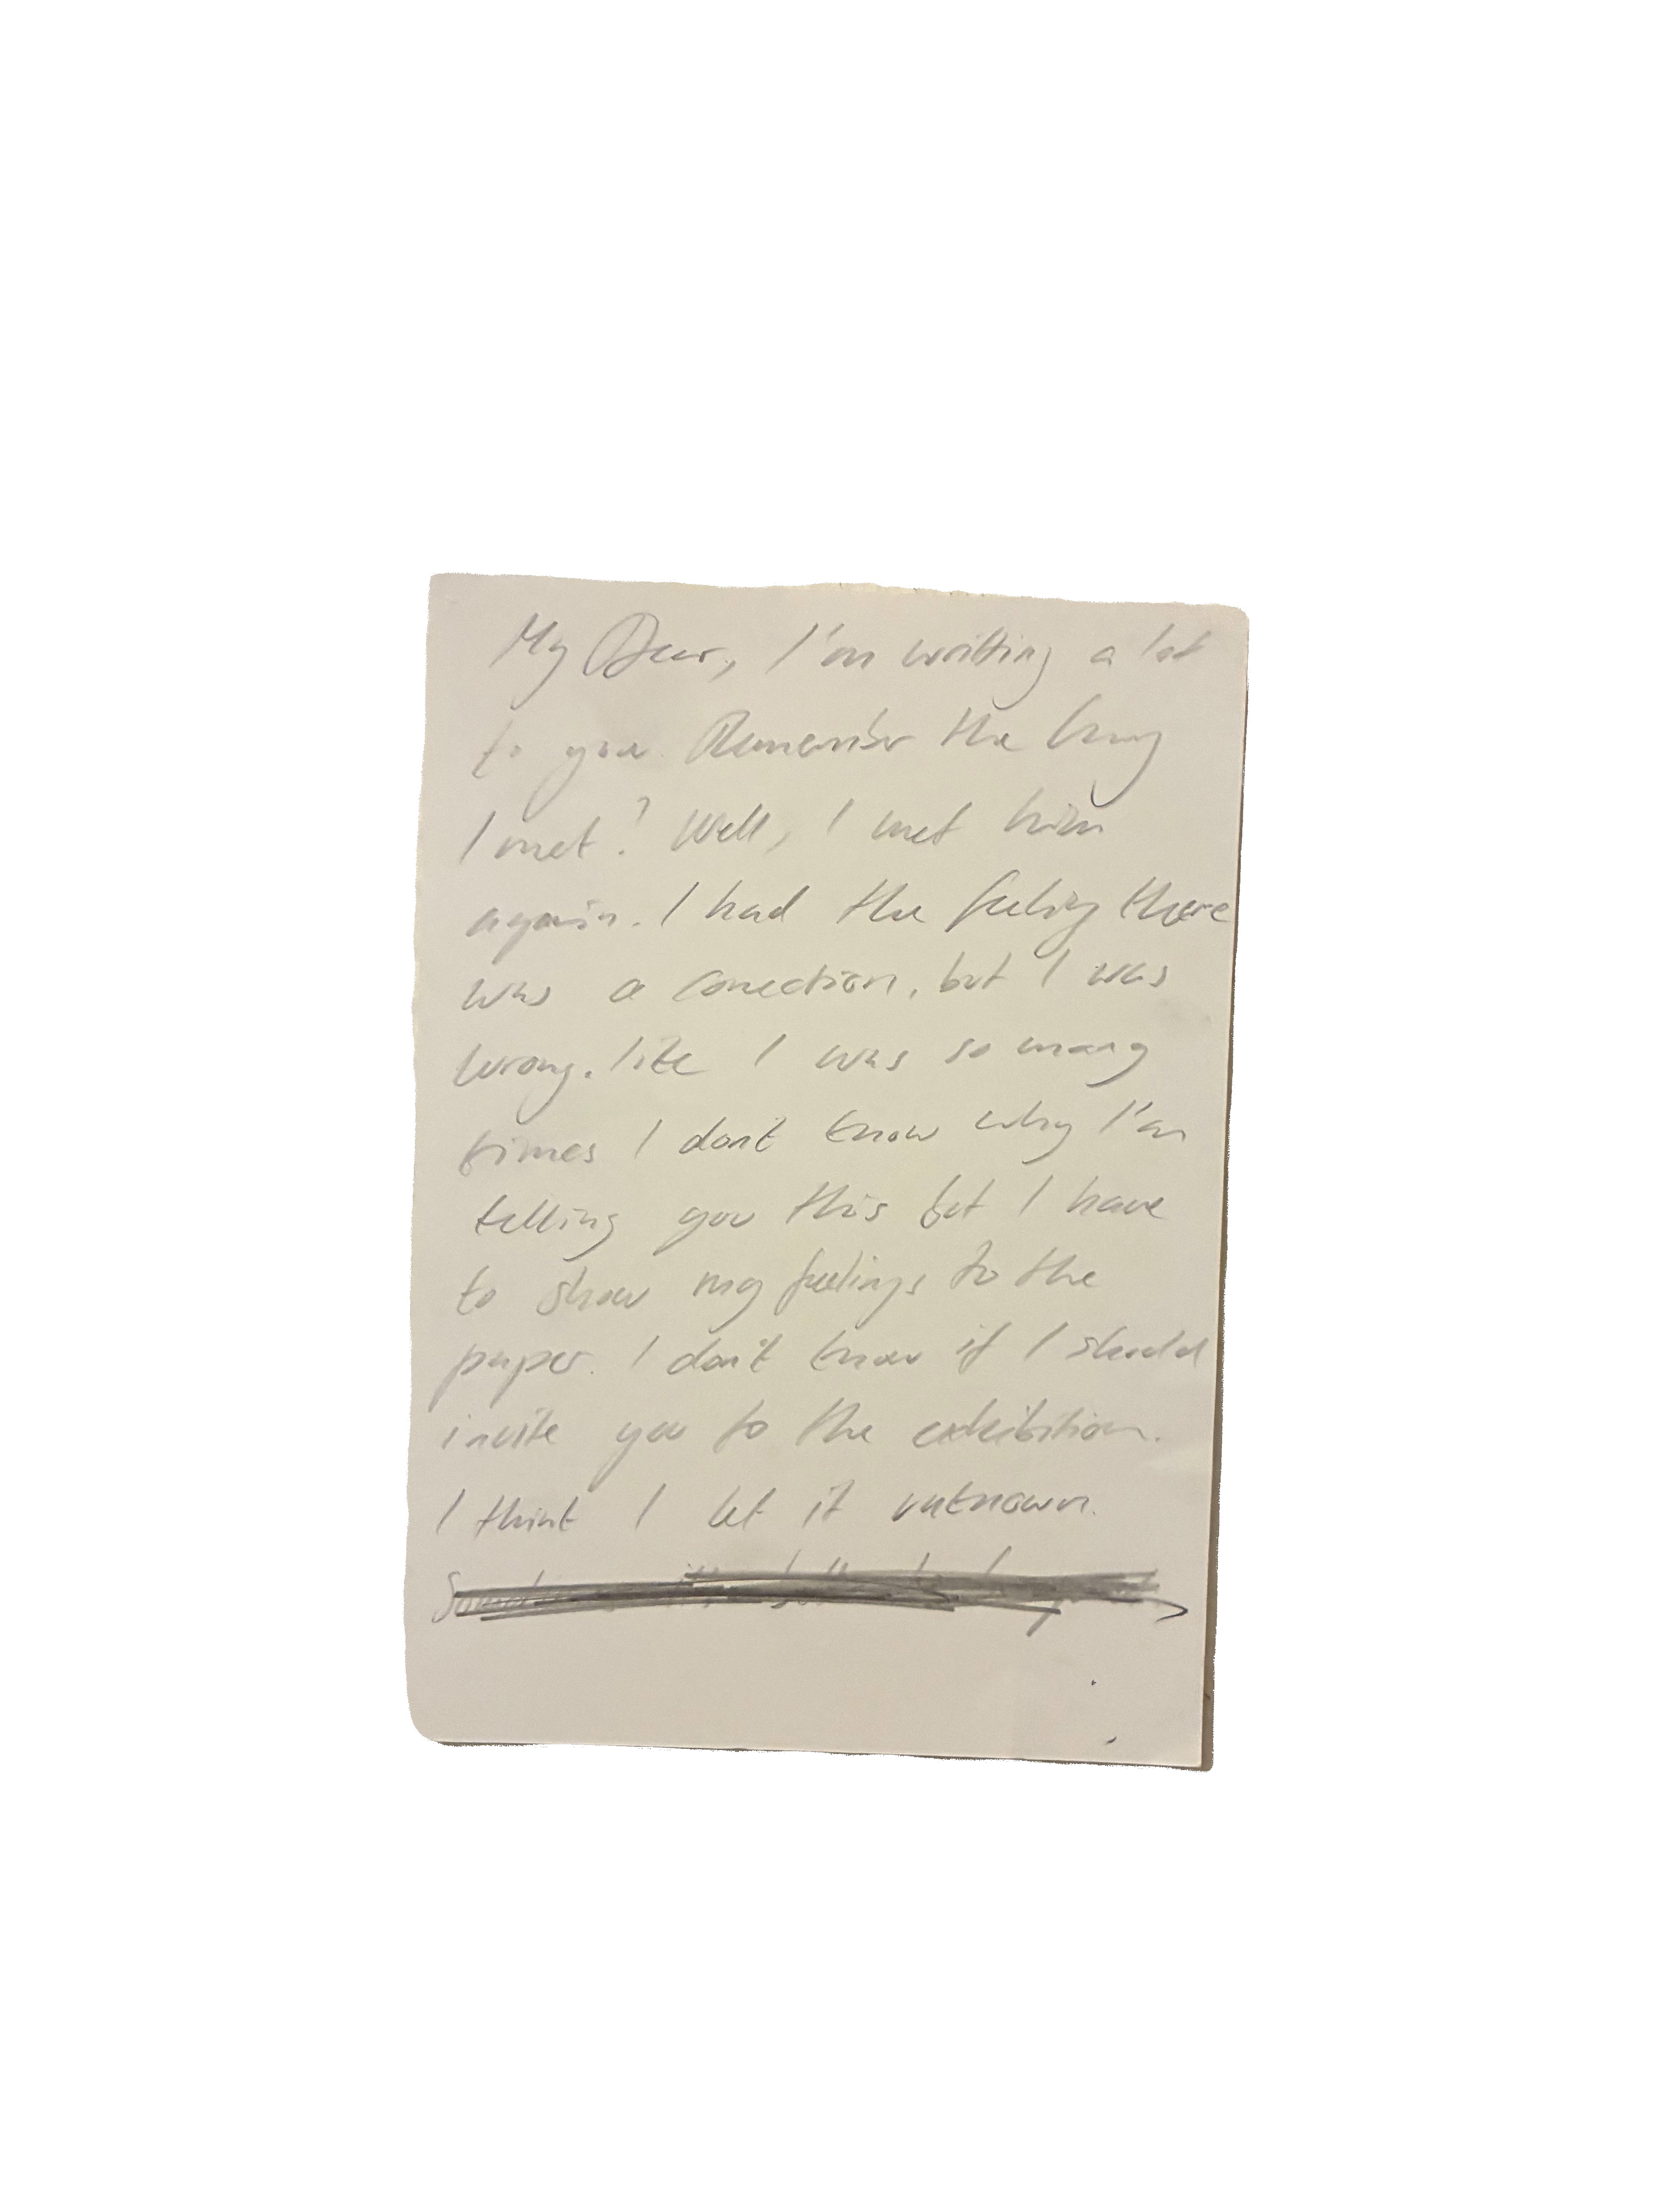 My Dear, I'm writing a lot
to you. Remember the
I met? Well, I met him
again. I had the feeling there
was a conection, but I was
wrong. like I was so many
times I don't know why I'm
telling you this but I have
to show my feelings to the
paper. I don't know if I should
invite you to the exhibition.
I think I let it unknown.